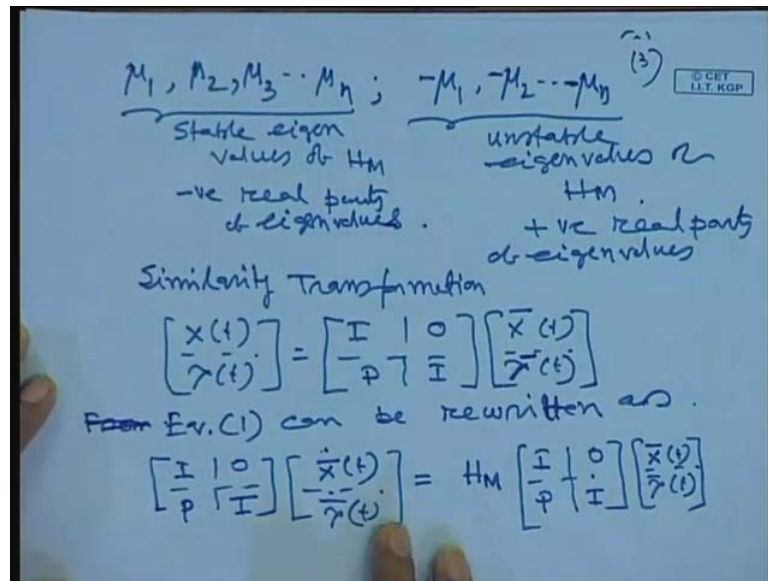 (3)
© CET
I.I.T. KGP
μ1, μ2, μ3 ·· μn ; -μ1, -μ2 --- -μn
Stable eigen values of HM
-ve real parts of eigenvalues.
unstable eigenvalues of HM.
+ve real parts of eigenvalues
Similarity Transformation
[x(t) / λ(t)] = [I | 0 / P | I] [x̄(t) / λ̄(t)]
Ev.(1) can be rewritten as.
[I | 0 / P | I] [ẋ̄(t) / λ̄̇(t)] = HM [I | 0 / P | I] [x̄(t) / λ̄(t)]